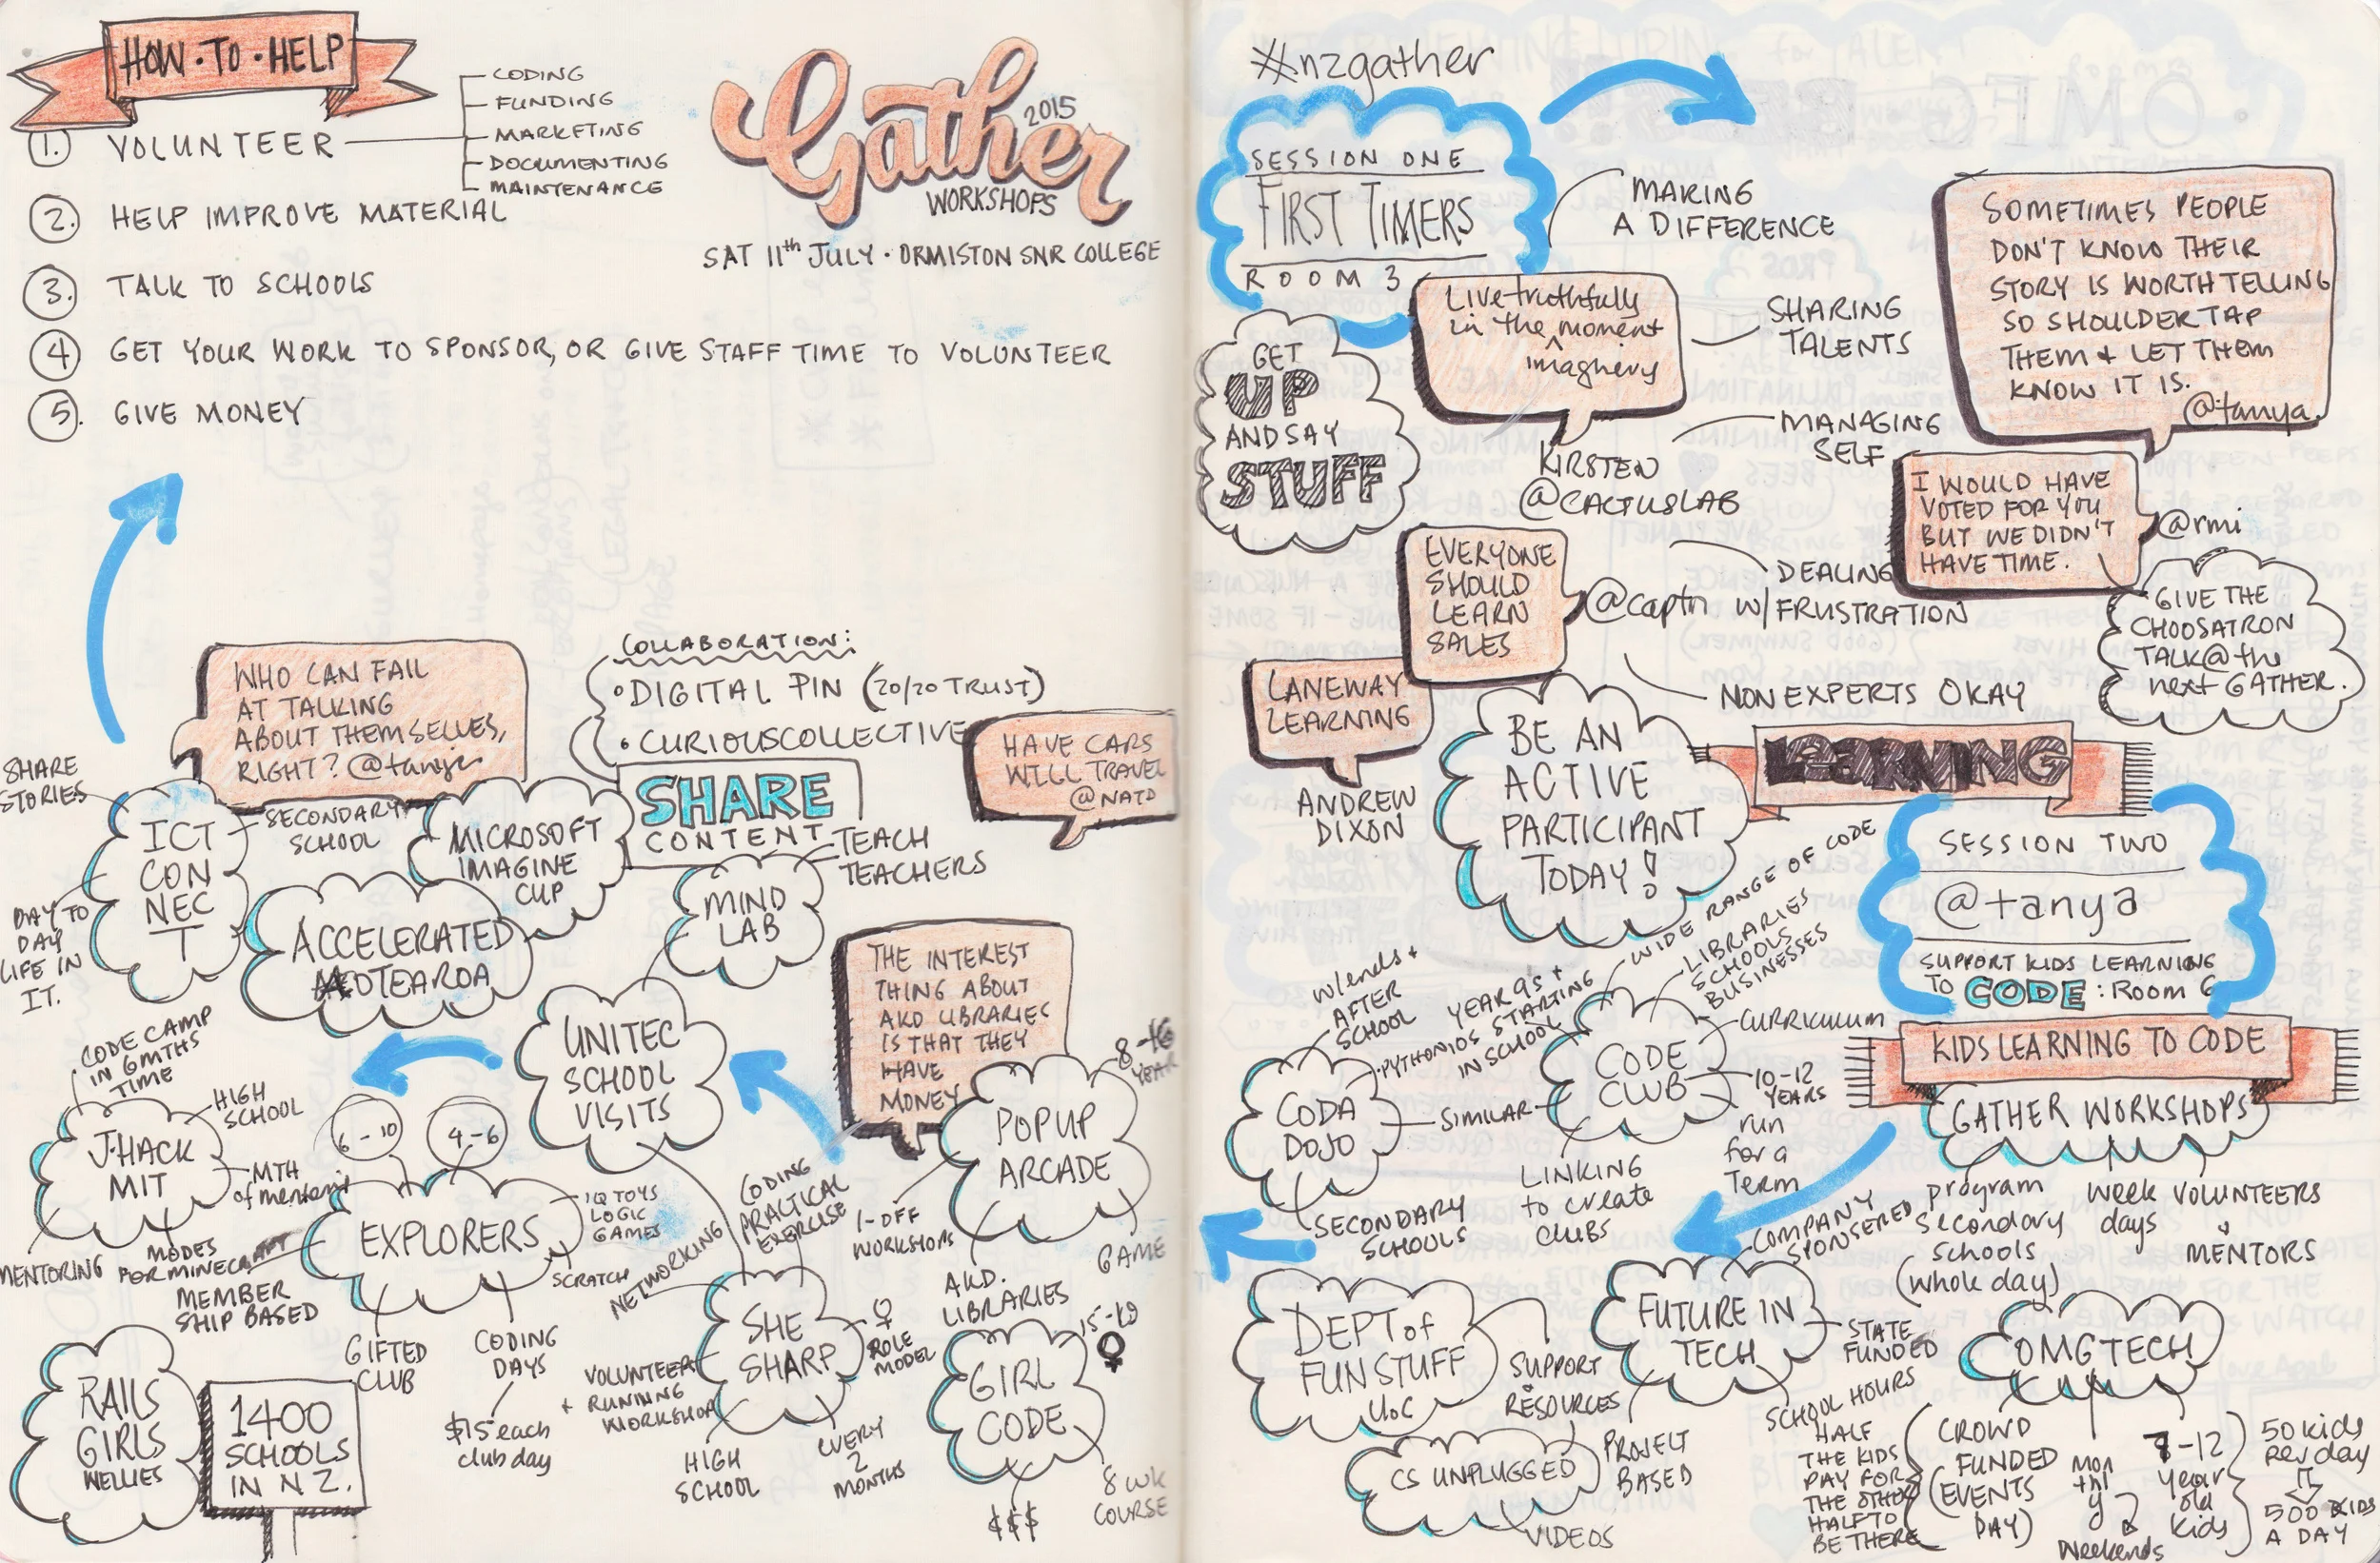 HOW·TO·HELP
1. VOLUNTEER
CODING
FUNDING
MARKETING
DOCUMENTING
MAINTENANCE
2. HELP IMPROVE MATERIAL
3. TALK TO SCHOOLS
4 GET YOUR WORK TO SPONSOR, OR GIVE STAFF TIME TO VOLUNTEER
5. GIVE MONEY
Gather
2015
WORKSHOPS
SAT 11th JULY · ORMISTON SNR COLLEGE
WHO CAN FAIL
AT TALKING
ABOUT THEMSELVES,
RIGHT? @tanya
COLLABORATION:
• DIGITAL PIN (20/20 TRUST)
• CURIOUSCOLLECTIVE
HAVE CARS
WILL TRAVEL
@NATD
SHARE
CONTENT
SHARE
STORIES
ICT
CON
NEC
T
SECONDARY
SCHOOL
DAY TO
DAY
LIFE IN
IT.
MICROSOFT
IMAGINE
CUP
ACCELERATED
AOTEAROA
TEACH
TEACHERS
MIND
LAB
THE INTEREST
THING ABOUT
AKD LIBRARIES
IS THAT THEY
HAVE
MONEY
UNITEC
SCHOOL
VISITS
CODE CAMP
IN 6MTHS
TIME
HIGH
SCHOOL
J·HACK
MIT
MTH
of mentoring
MENTORING
6-10
4-6
EXPLORERS
IQ TOYS
LOGIC
GAMES
SCRATCH
MODES
FOR MINECRAFT
MEMBER
SHIP BASED
GIFTED
CLUB
CODING
DAYS
$15 each
club day
NETWORKING
CODING
PRACTICAL
EXERCISE
SHE
SHARP
♀
ROLE
MODEL
VOLUNTEER
+ RUNNING
WORKSHOP
HIGH
SCHOOL
EVERY
2
MONTHS
8-16
YEAR
POPUP
ARCADE
1-OFF
WORKSHOPS
AKD.
LIBRARIES
GAME
15-19
♀
GIRL
CODE
$$$
8 WK
COURSE
RAILS
GIRLS
WELLIES
1400
SCHOOLS
IN NZ.
#nzgather
SESSION ONE
FIRST TIMERS
ROOM 3
MAKING
A DIFFERENCE
GET
UP
AND SAY
STUFF
Live truthfully
in the moment
^
imaginery
KIRSTEN
@CACTUSLAB
SHARING
TALENTS
MANAGING
SELF
SOMETIMES PEOPLE
DON'T KNOW THEIR
STORY IS WORTH TELLING
SO SHOULDER TAP
THEM + LET THEM
KNOW IT IS.
@tanya.
I WOULD HAVE
VOTED FOR YOU
BUT WE DIDN'T
HAVE TIME.
@rmi
GIVE THE
CHOOSATRON
TALK @ the
next GATHER.
EVERYONE
SHOULD
LEARN
SALES
@captn
DEALING
W/FRUSTRATION
NON EXPERTS OKAY
LANEWAY
LEARNING
ANDREW
DIXON
BE AN
ACTIVE
PARTICIPANT
TODAY!
LEARNING
SESSION TWO
@tanya
SUPPORT KIDS LEARNING
TO CODE: Room 6
KIDS LEARNING TO CODE
GATHER WORKSHOPS
program
secondary
schools
(whole day)
week
days
VOLUNTEERS
+
MENTORS
WIDE RANGE OF CODE
LIBRARIES
SCHOOLS
BUSINESSES
CODE
CLUB
CURRICULUM
10-12
YEARS
run
for a
Term
LINKING
to create
clubs
SIMILAR
w/ends +
AFTER
SCHOOL
YEAR 9s +
PYTHON IOS STARTING
IN SCHOOL
CODA
DOJO
SECONDARY
SCHOOLS
DEPT of
FUN STUFF
UoC
SUPPORT
+
RESOURCES
CS UNPLUGGED
VIDEOS
COMPANY
SPONSERED
FUTURE IN
TECH
STATE
FUNDED
PROJECT
BASED
SCHOOL HOURS
OMGTECH
HALF
THE KIDS
PAY FOR
THE OTHER
HALF TO
BE THERE
CROWD
FUNDED
(EVENTS
DAY)
mon
thl
y
&
Weekends
7-12
year
old
kids
50 kids
per day
500 KIDS
A DAY